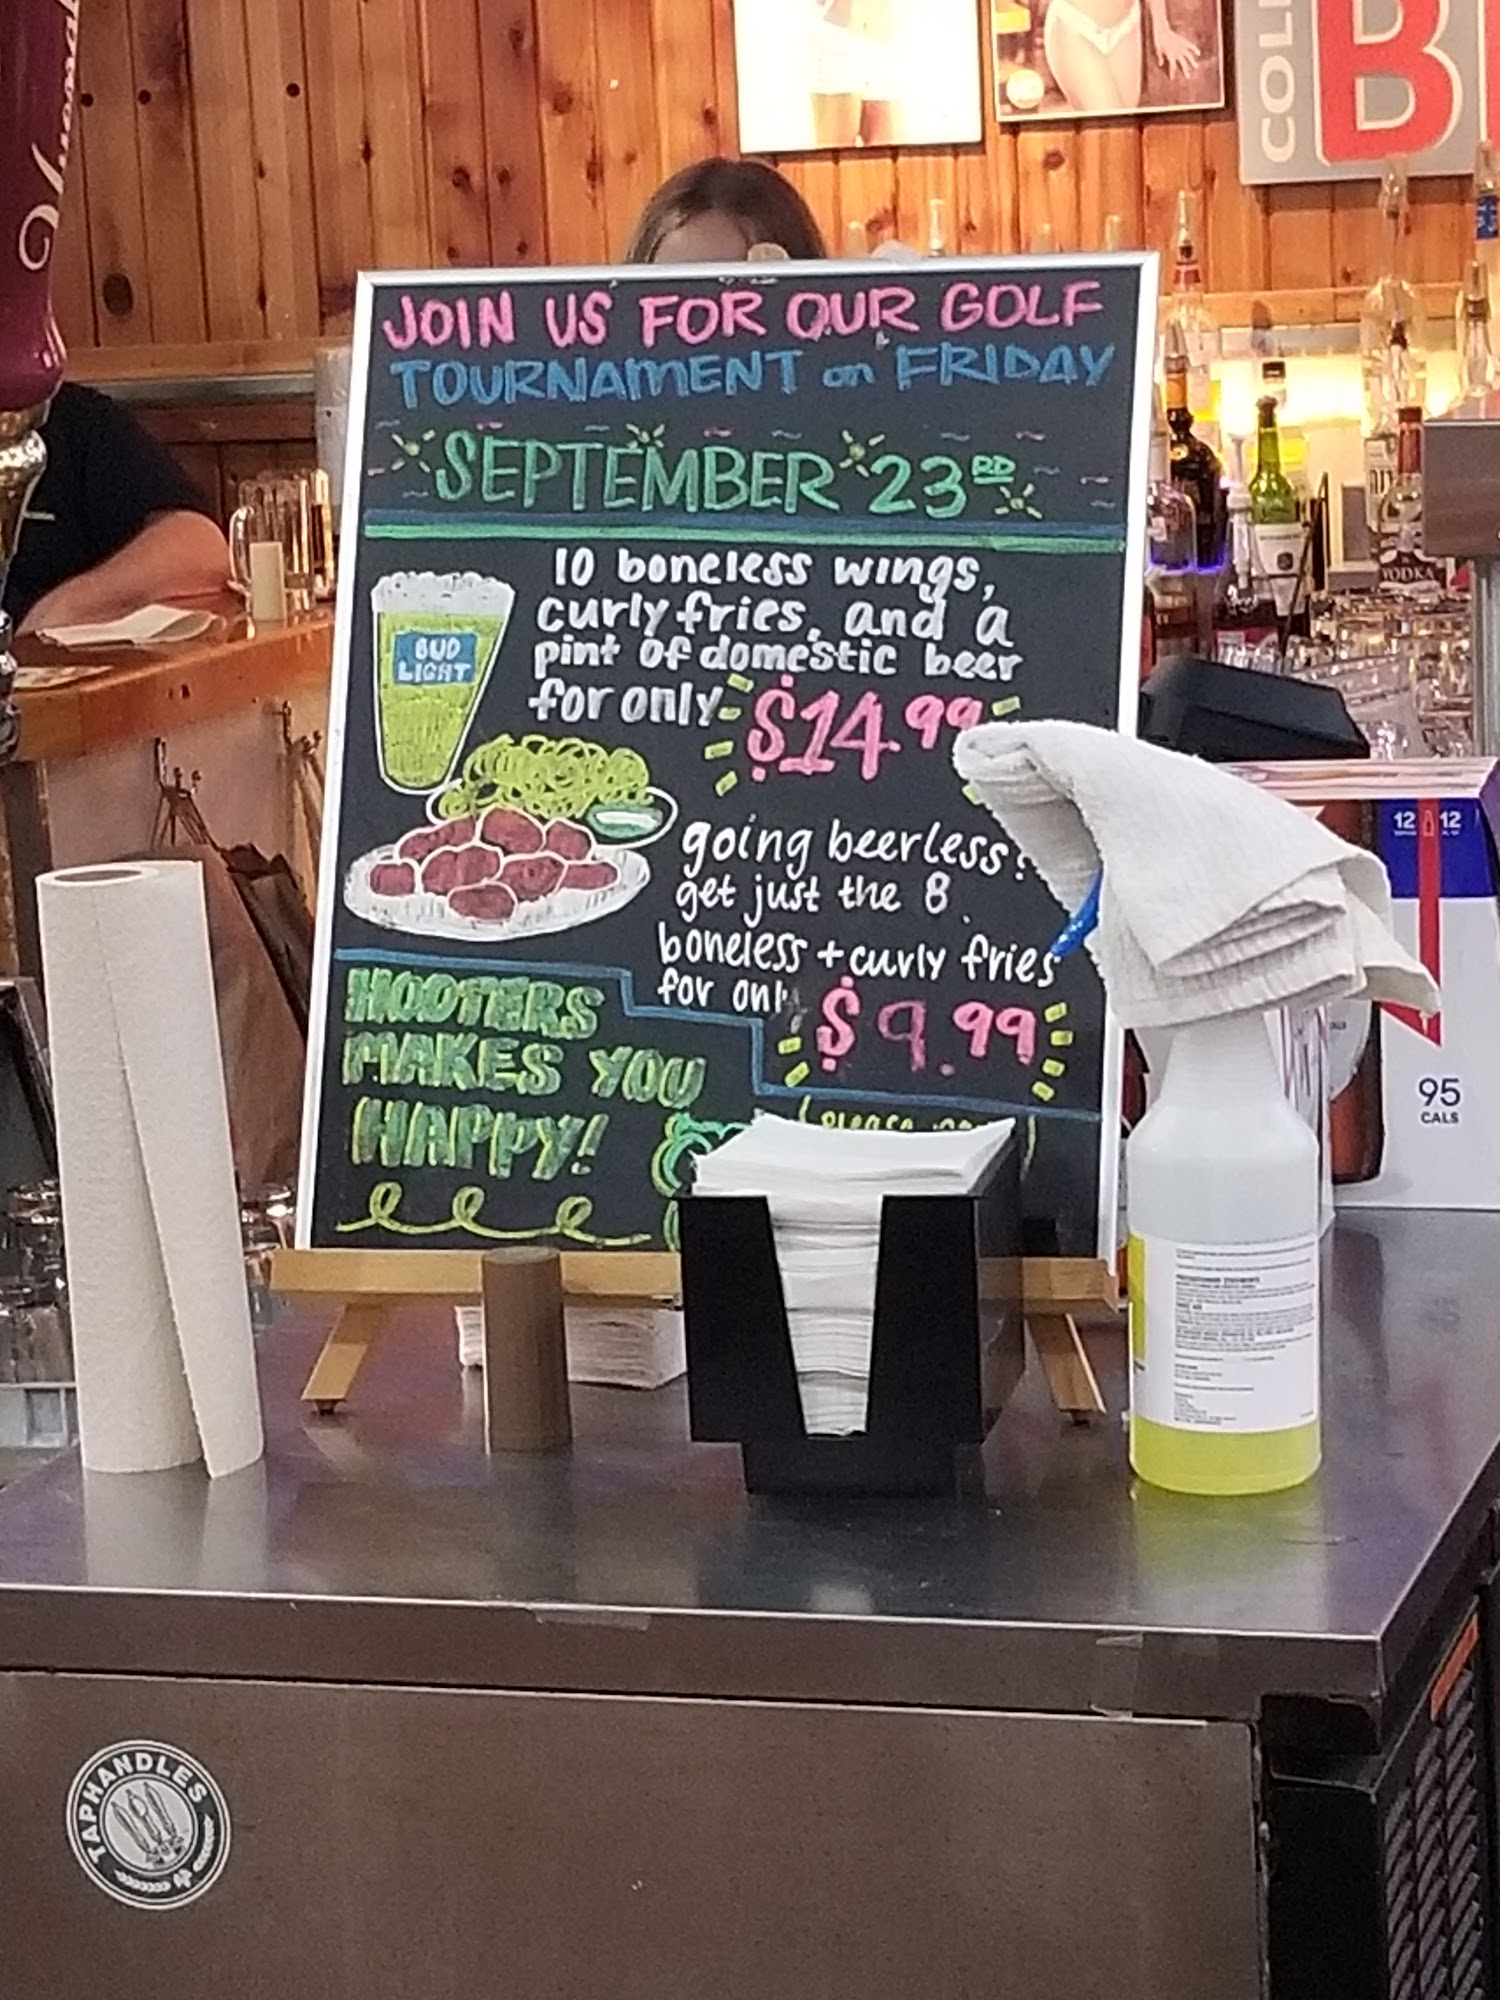 COLD
JOIN US FOR OUR GOLF
TOURNAMENT on FRIDAY
SEPTEMBER 23RD
10 boneless wings,
curly fries, and a
pint of domestic beer
for only $14.99
BUD
LIGHT
going beerless?
get just the 8
boneless + curly fries
for only $9.99
HOOTERS
MAKES YOU
HAPPY!
please
VODKA
12 12
95
CALS
TAPHANDLES